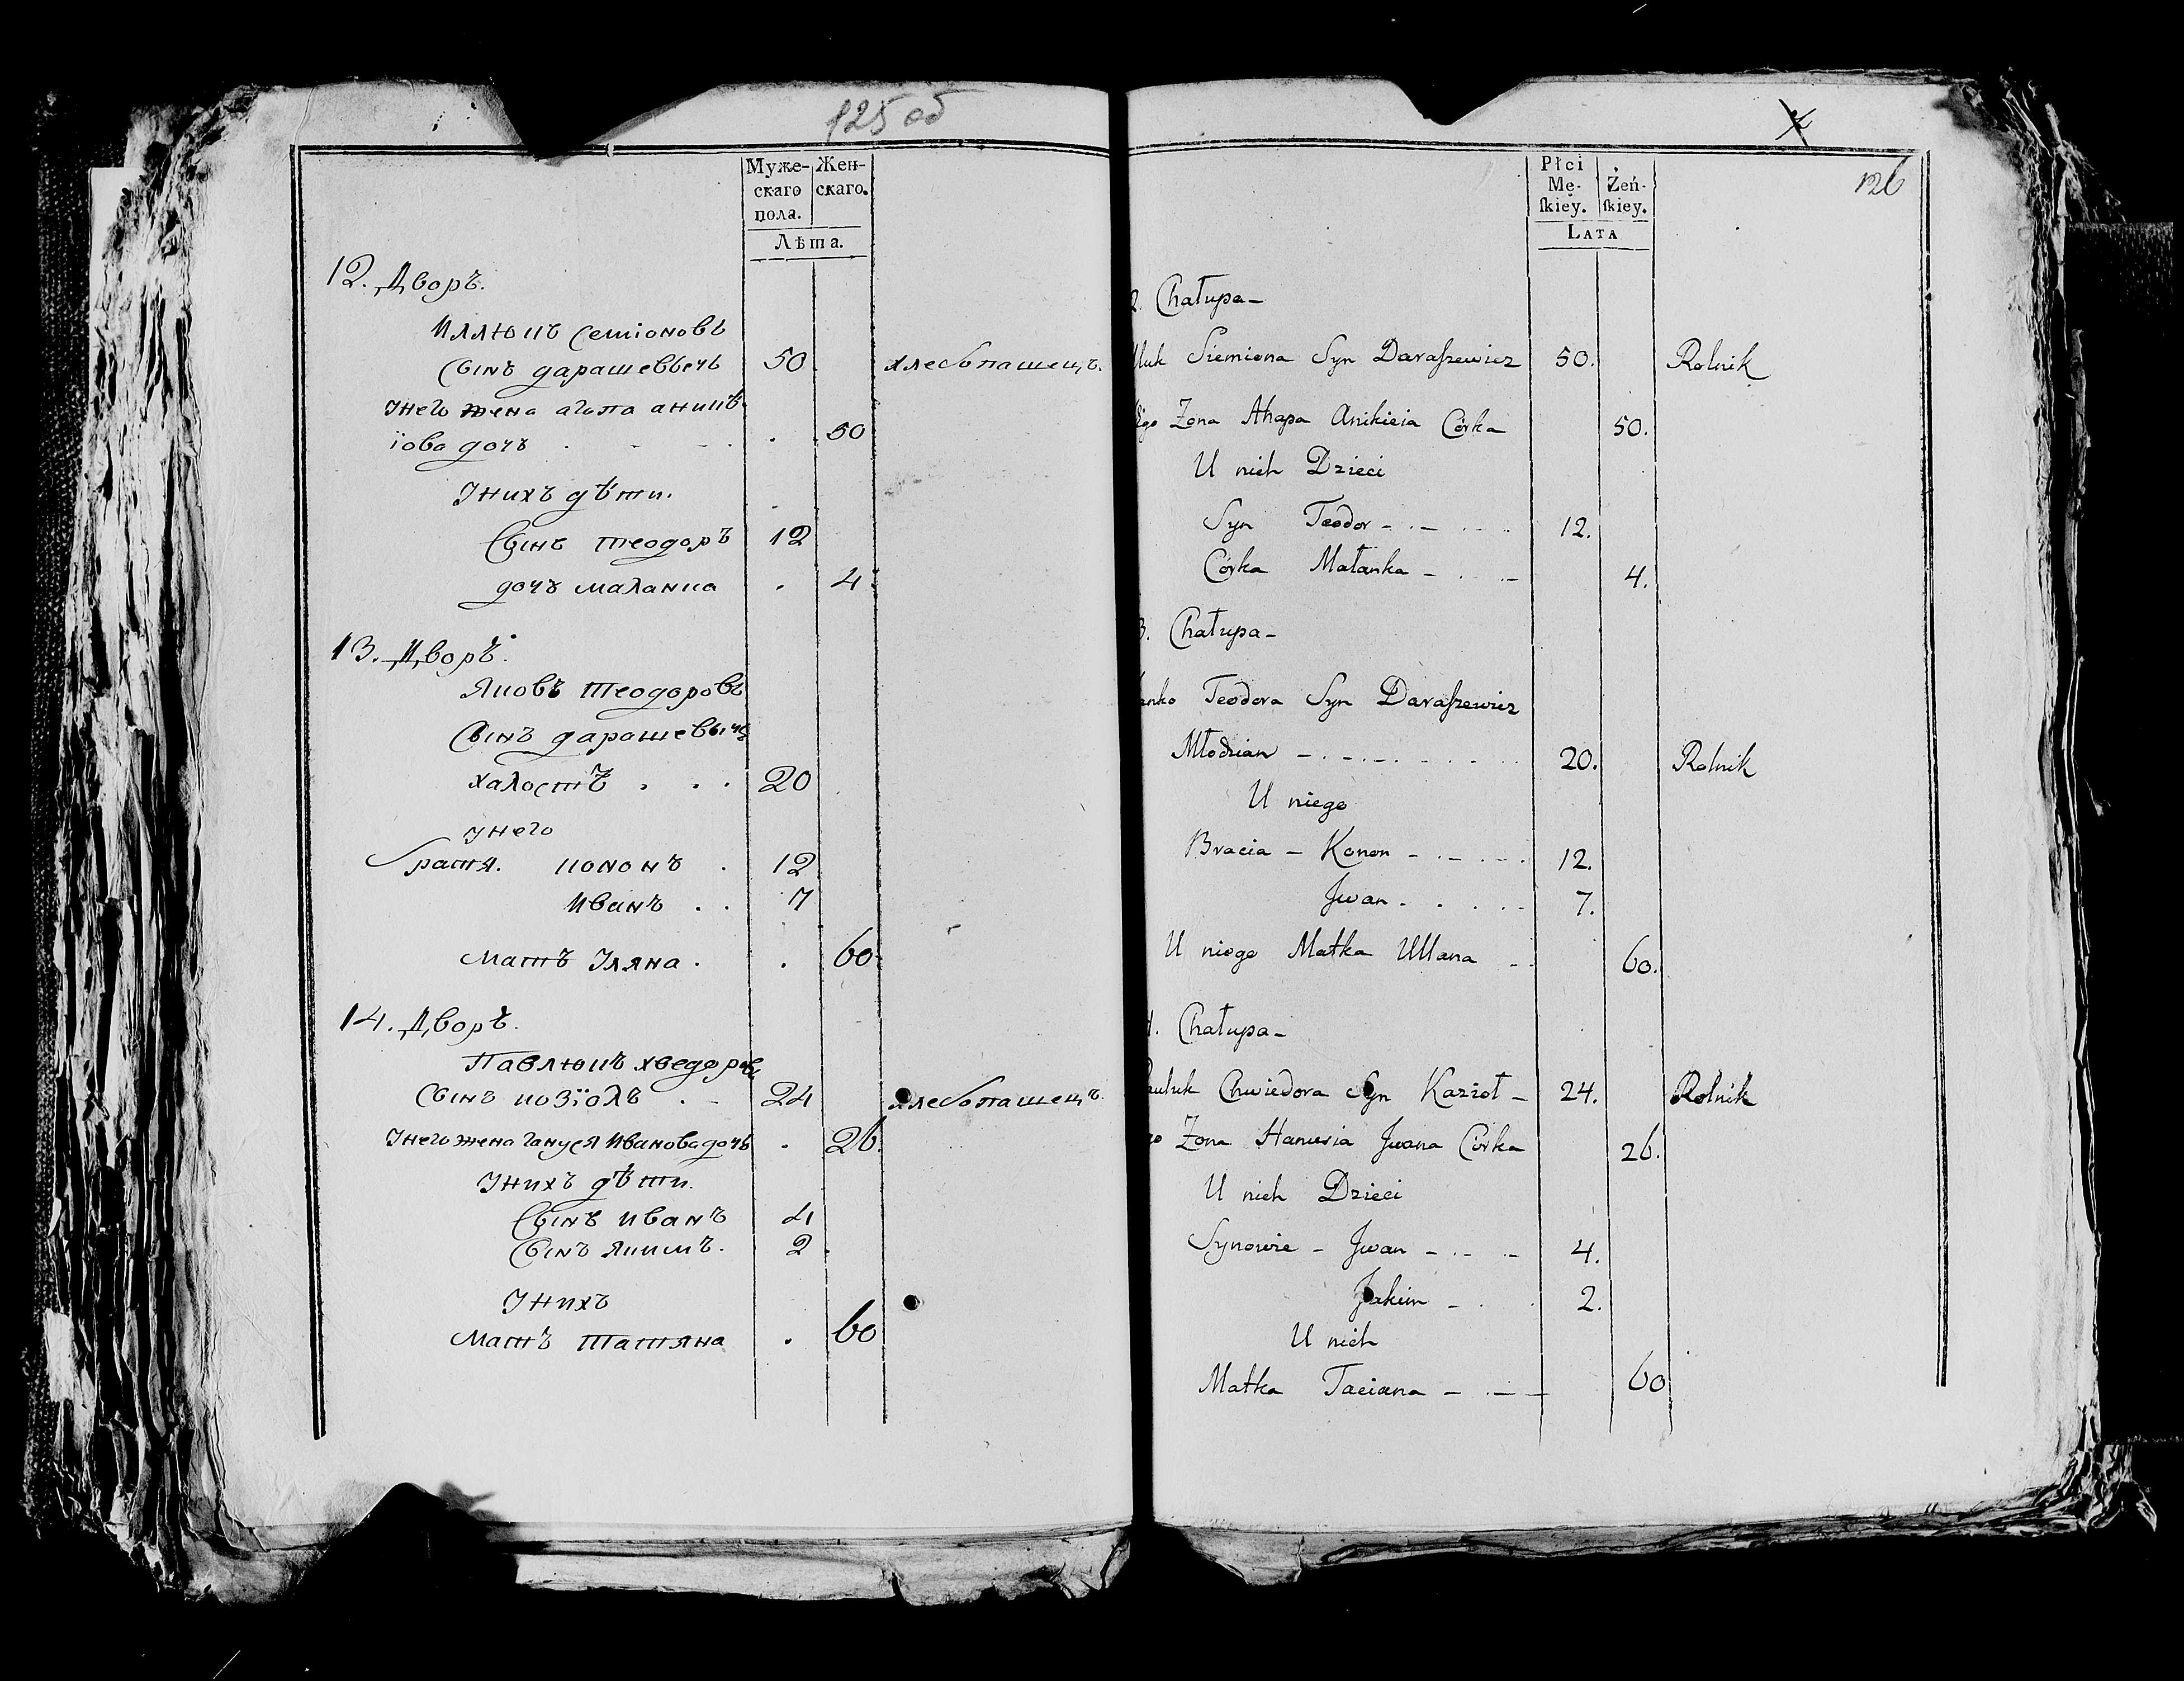 125 об
Муже- Жен-
скаго скаго.
пола.
Лѣта.
12. Дворъ.
Иллюкъ Семіоновъ
Сынъ дарашевьечь 50 хлебопашецъ.
Унего жена агопа аникѣ
їова дочъ 50
Унихъ дѣти.
Сынъ теодоръ 12
дочъ маланка 4
13. Дворъ.
Яковъ теодоровъ
Сынъ дарашевычъ
халостъ . . . 20
Унего
братя. кононъ . 12
Иванъ . . 7
Матъ Уляна . . 60
14. Дворъ.
Павлюкъ хведоровъ
Сынъ козїолъ . - 24 хлебопашецъ
Унего жена гануся Иванова дочъ . 26.
Унихъ дѣти.
Сынъ иванъ 4
Сынъ якимъ. 2
Унихъ
Матъ татяна . 60
126
Płci
Mę- Żeń-
ſkiey. ſkiey.
LATA
2. Chałupa -
lluk Siemiona Syn Daraſzewicz 50. Rolnik
Żona Ahapa Anikieia Córka 50.
U nich Dzieci
Syn Teodor - . - . . . 12.
Córka Małanka - . . - 4.
3. Chałupa -
anko Teodora Syn Daraſzewicz
Młodzian - . - . - . . . . 20. Rolnik
U niego
Bracia - Konon - . - . - . 12.
Jwan . . . . - 7.
U niego Matka Ullana - - 60.
4. Chałupa -
auluk Chwiedora Syn Kazioł - 24. Rolnik
go Żona Hanusia Jwana Córka 26.
U nich Dzieci
Synowie - Jwan - . - . - 4.
Jakim - . . 2.
U nich
Matka Taciana - . - - 60